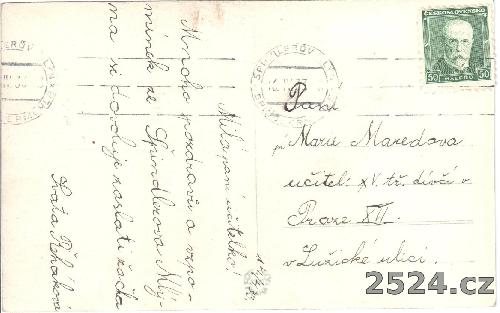 Milá paní učitelko!
Mnoho pozdravů a vzpo-
mínek ze Špindlerova Mlý-
na si dovoluje zaslati žačka
Zlata Řeháková
ČESKOSLOVENSKO
50 HALÉŘŮ 50
Paní
Marii Maredova
učitel. XV. tř. dívčí v
Praze XII.
v Lužické ulici.
2524.cz